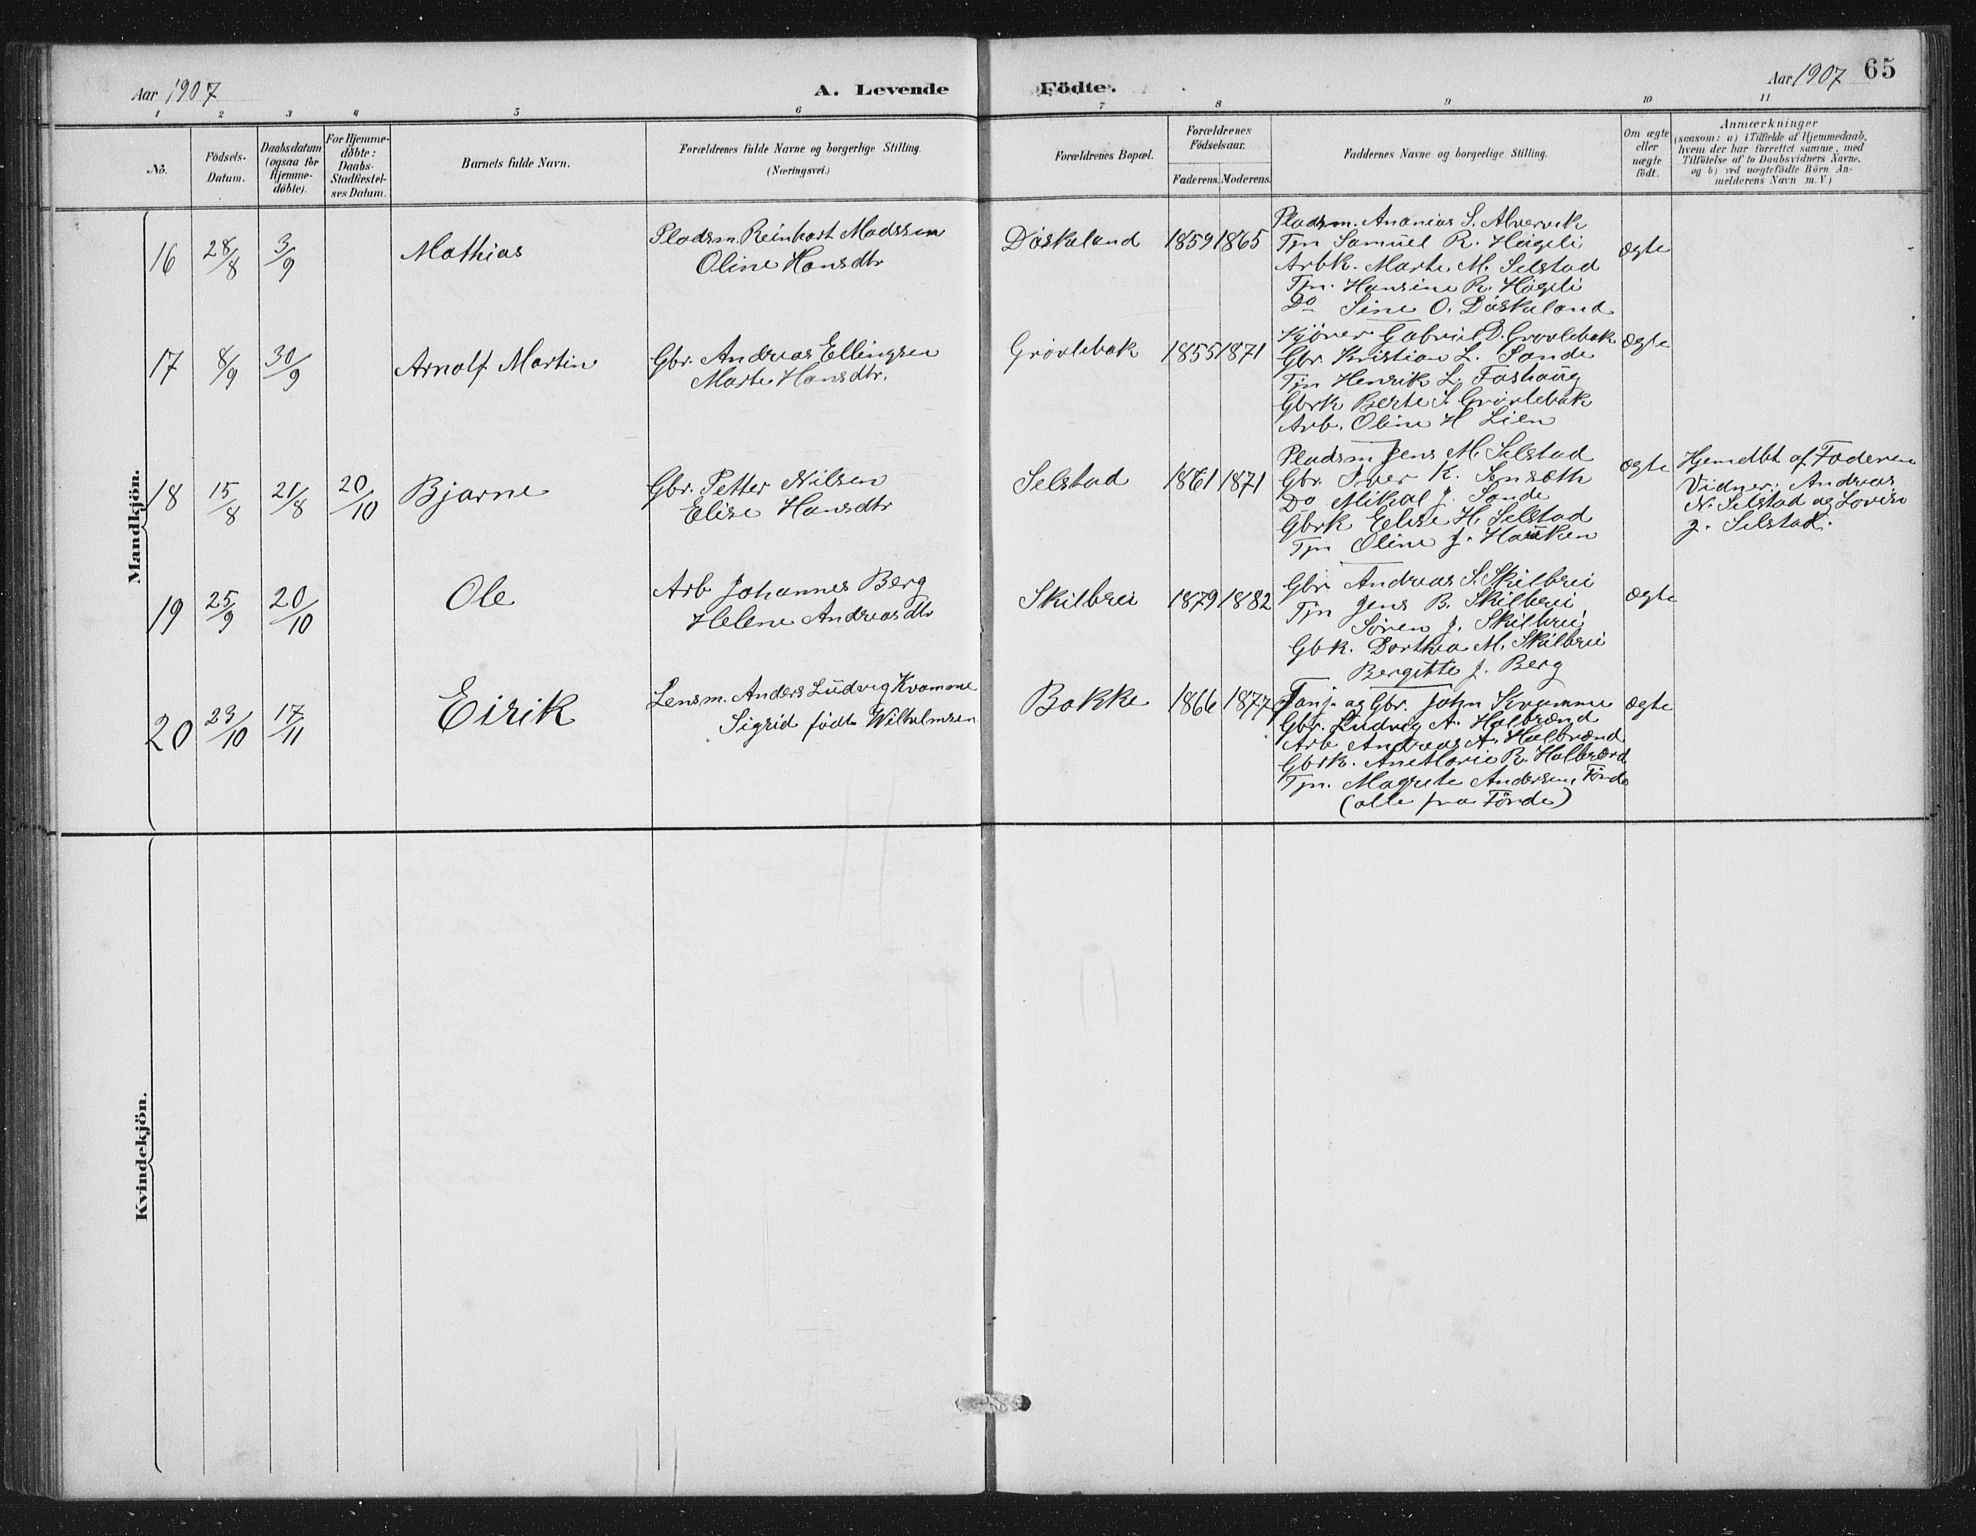 Aar 1907
A. Levende Födte.
Aar 1907 65
1 2 3 4 5 6 7 8 9 10 11
No.
Födsels-Datum.
Daabsdatum (ogsaa for Hjemme-döbte).
For Hjemme-döbte: Daabs-Stadfæstel-ses Datum.
Barnets fulde Navn.
Forældrenes fulde Navne og borgerlige Stilling.
(Næringsvei.)
Forældrenes Bopæl.
Forældrenes Födselsaar.
Faderens. Moderens.
Faddernes Navne og borgerlige Stilling.
Om ægte eller uægte födt.
Anmærkninger
(saasom: a) i Tilfælde af Hjemmedaab,
hvem der har forrettet samme, med
Tilföielse af to Daabsvidners Navne.
og b) ved uægtefödte Börn An-
melderens Navn m. V.)
Mandkjön.
16 28/8 3/9 Mathias
Pladsm. Reinhart Madssen
Oline Hansdtr
Döskeland 1859 1865
Pladsm. Ananias S. Alvervik
Tjn Samuel R. Högeli
Arbk. Marte M. Selstad
Tjn. Hansine R. Högeli
Do Sine O. Döskeland
ægte
17 8/9 30/9 Arnolf Martin
Gbr. Andreas Ellingsen
Marte Hansdtr.
Grövlebak 1855 1871
Kjörer Gabriel D. Grovlebak
Gbr. Kristian L. Sande
Tjn Henrik L. Foshaug
Gbrk Berte S. Grövlebak
Arb. Oline H Lien
ægte
18 15/8 21/8 20/10 Bjarne
Gbr. Petter Nilsen
Elise Hansdtr
Selstad 1861 1871
Pladsm Jens M. Selstad
Gbr. Iver K.
Do Mikal J. Sande
Gbrk Elise H. Selstad
Tjn Oline J. Hauken
ægte
Hjemdbt af Faderen
Vidner: Andreas
N. Selstad og Lovise
J. Selstad.
19 25/9 20/10 Ole
Arb Johannes Berg
Helene Andreasdtr
Skilbrei 1879 1882
Gbr Andreas S. Skilbrei
Tjn Jens B. Skilbrei
Sören J. Skilbrei
Gbk. Dorthea M. Skilbrei
Bergitte J. Berg
ægte
20 23/10 17/11 Eirik
Lensm. Anders Ludvig Kvamme
Sigrid födt Wilhelmsen
Bakke 1866 1877
Fanj. og Gbr. John Kvamme
Gbr. Ludvig A. Halbrend
Arb Andreas A. Halbrend
Gbrk. Ane Marie R. Halbrend
Tjn. Magrete Andersen, Förde
(alle fra Förde)
ægte
Kvindekjön.